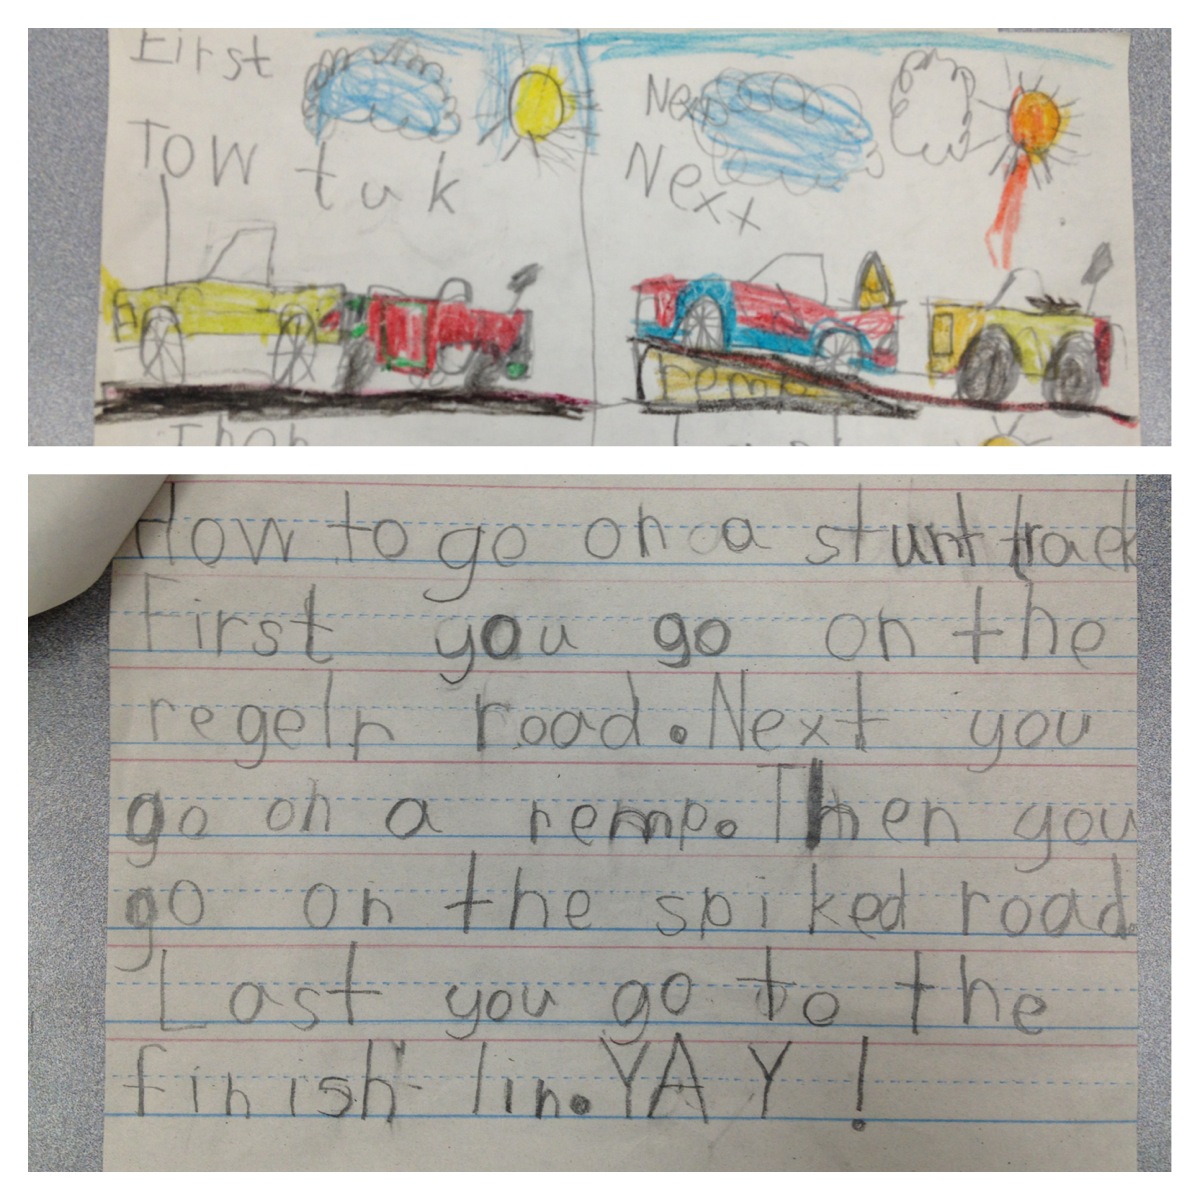 First
TOW tuk
Next
Next
remp
Then
How to go on a stunt track
First you go on the
regelr road. Next you
go on a remp. Then you
go on the spiked road.
Last you go to the
finish lin. YAY!